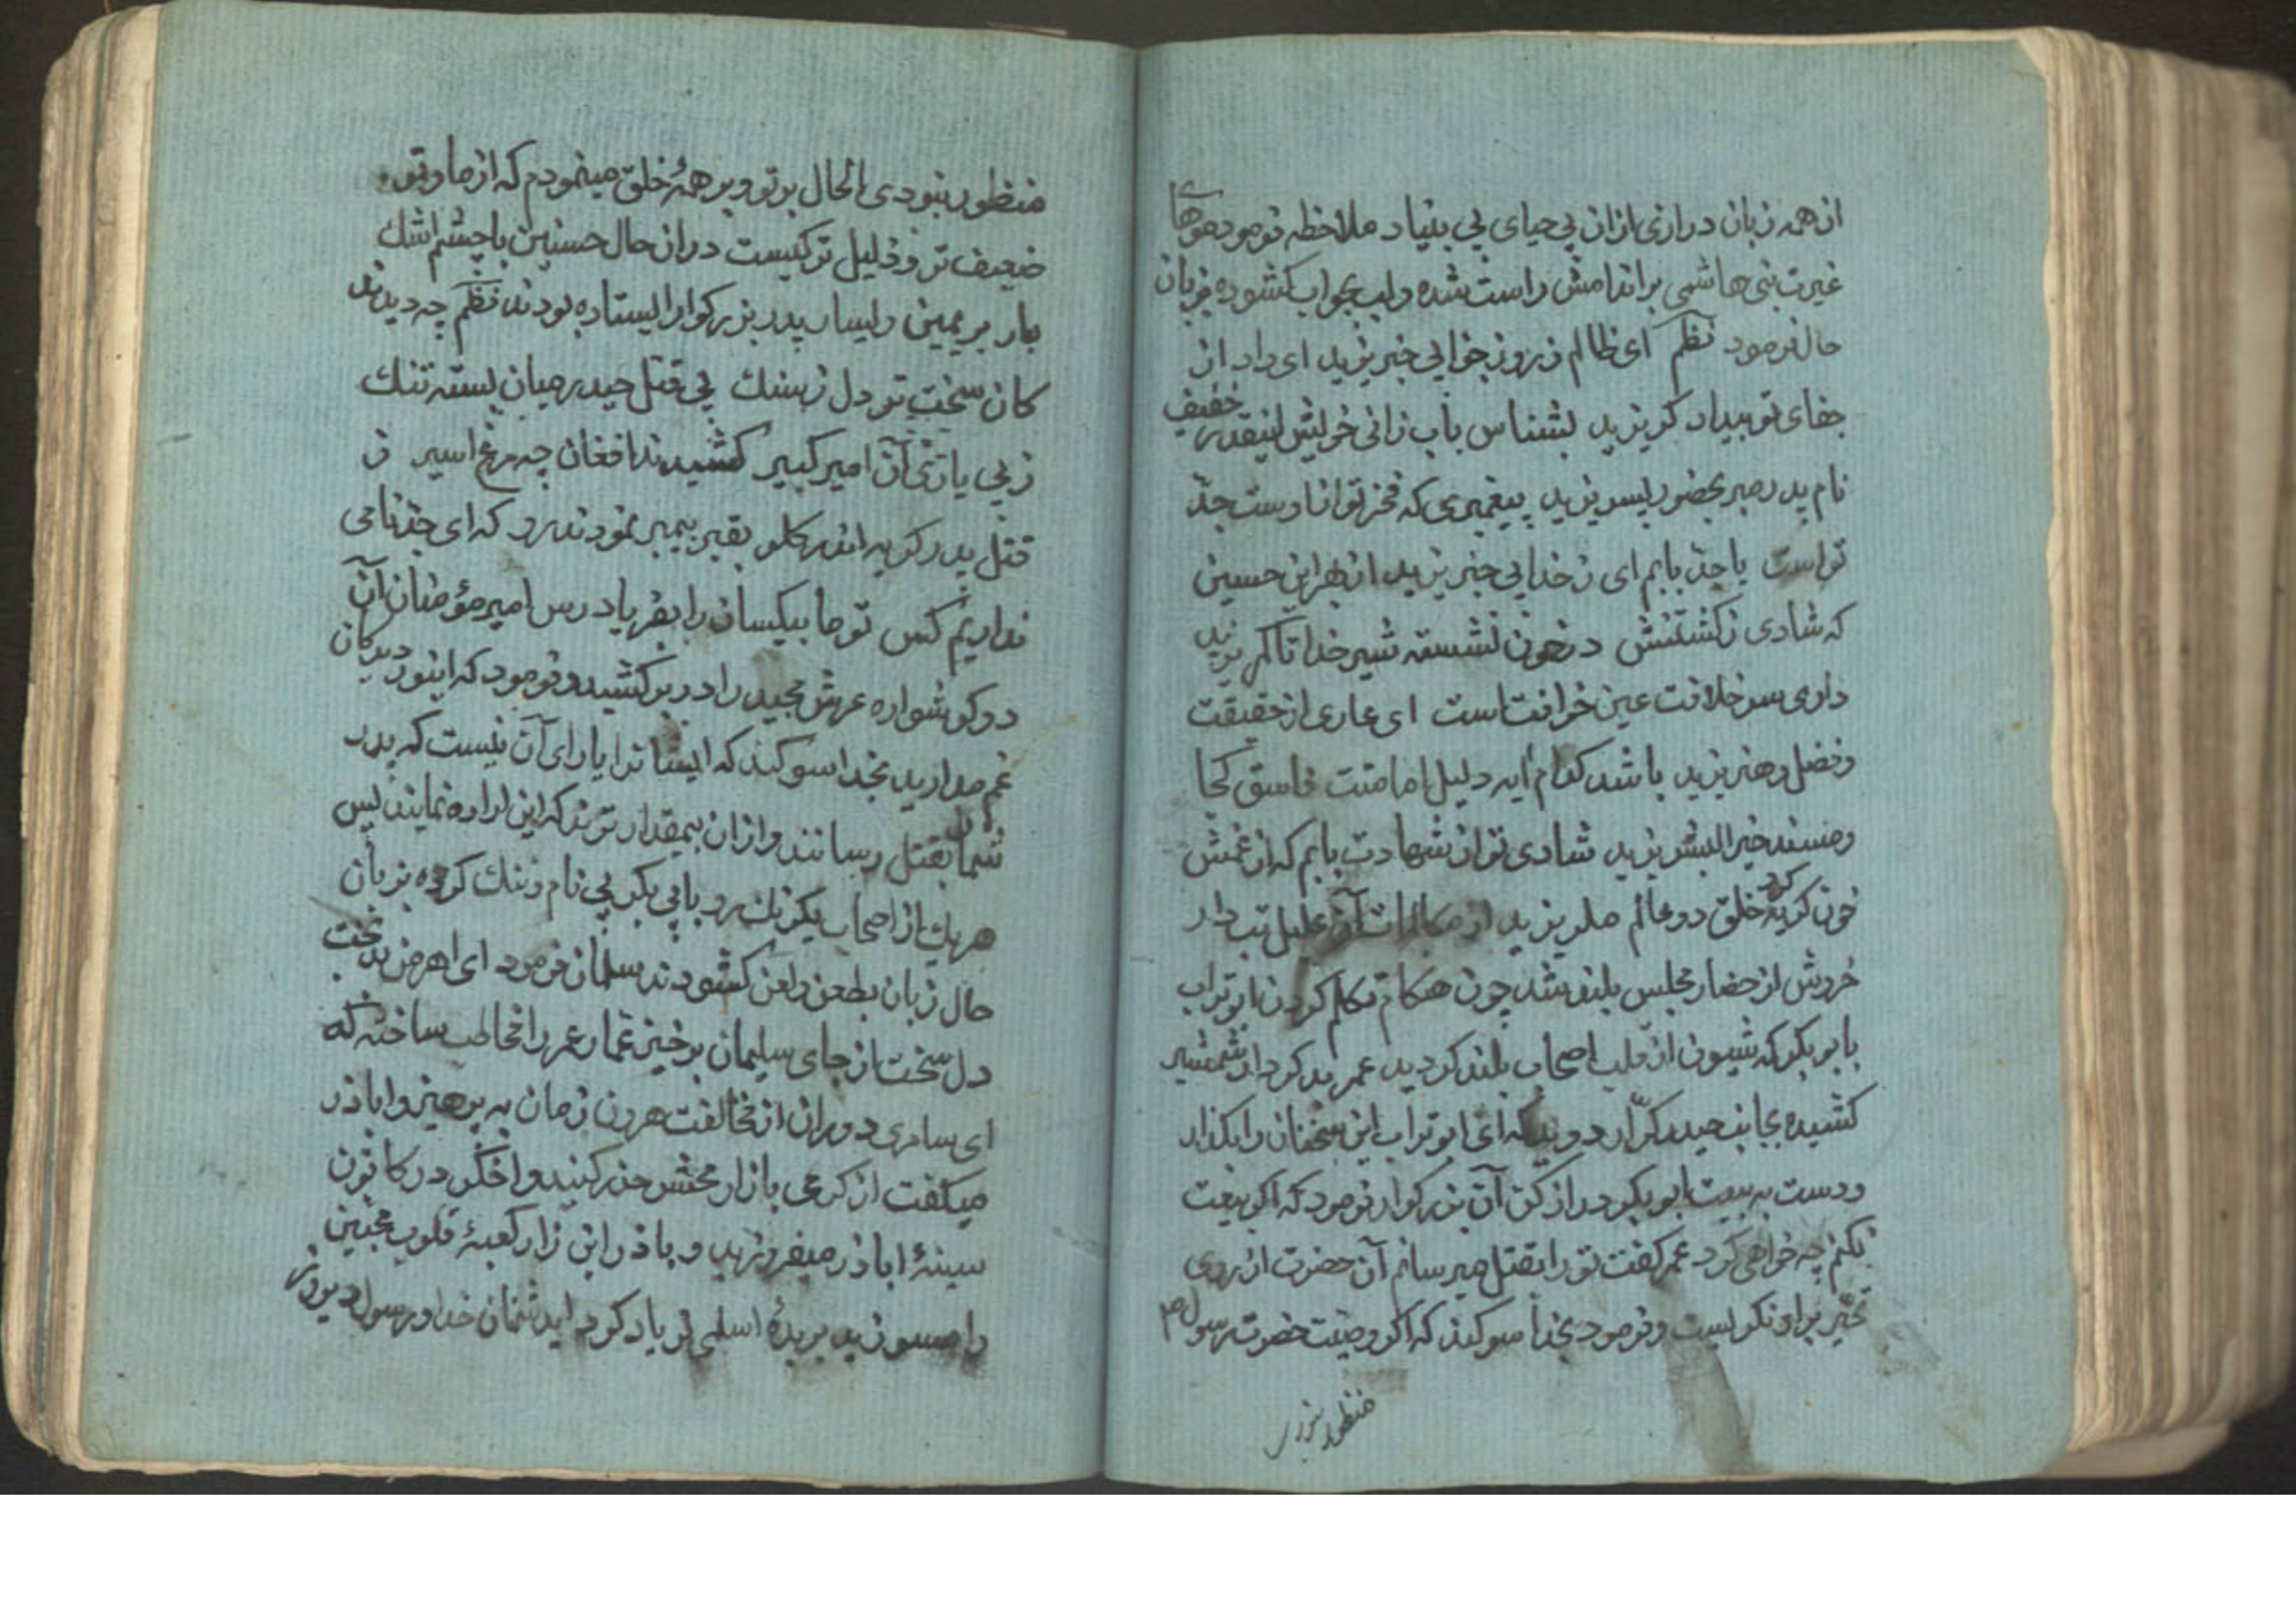 از همه زبان درازی ازان بی حیای بی بنیاد ملاحظه فرمود موهای
غیرت بنی هاشمی براندامش راست شده ولب بجواب کشوده بزبان
حال فرمود نظم ای ظالم ز روز جزا بی خبر یزید ای داد از
جفای تو بیداد کر یزید بشناس باب زانی خویش اینقدر خفیف
نام پدر مبر بحضور پسر یزید پیغمبری که فخر تو انا وست جدّ
تو است یا جدّ بابم ای ز خدا بی خبر یزید از بهر این حسین
که شادی ز کشتنش در خون نشسته شیر خدا تا کمر یزید
داری سر خلافت عین خرافت است ای عاری از حقیقت
وفضل وهنر یزید باشد کدام ایه دلیل امامتت فاسق کجا
ومسند خیر البشر یزید شادی تو از شهادت بابم که از غمش
خون کریه کرد خلق دو عالم مکر یزید از مکالمات آن علیل تب دار
خروش از حضار مجلس بلند شد چون هنکام تکلم کردن ابو تراب
بابو بکر که شیون از قلب اصحاب بلند کردید عمر بد کردار شمشیر
کشیده بجانب حیدر کرّار دوید که ای ابو تراب این سخنان را بکذار
ودست به بیعت ابو بکر دراز کن آن بزرکوار فرمود که اکر بیعت
نکنم چه خواهی کرد عمر کفت تو را بقتل میرسانم آن حضرت از روی
تحیّر براو نکریست وفرمود بخدا سوکند که اکر وصیت حضرت رسول ص
منظور نبودی
منظور نبودی الحال بر تو وبر همهٔ خلق مینمودم که از ما وتو
ضعیف تر وذلیل تر کیست دران حال حسنین باچشم اشک
بار بر یمین ویسار پدر بزرکوار ایستاده بودند نظم چه دیدند
کان سخت تر دل ز سنک پی قتل حیدر میان بسته تنک
ز بی یاری آن امیر کبیر کشیدند افغان چه مرغ اسیر ز
قتل پدر کریه اندر کلو بقبر پیمبر نمودند رو که ای جدّ نامی
نداریم کس تو ما بیکسان را بفریاد رس امیر مؤمنان آن
دو کوشواره عرش مجید را در بر کشید وفرمود که ای نور دیدکان
غم مدارید بخدا سوکند که ایشانرا یارای آن نیست که پدر
شمارا بقتل رسانند وازان بیمقدار ترند که این اراده نمایند پس
هریک از اصحاب یکرنک رو بابی بکر بی نام وننک کرده بزبان
حال زبان بطعن ولعن کشودند سلمان فرمود ای اهرمن بد بخت
دل سخت از جای سلیمان برخیز عمار عمر را مخاطب ساخته که
ای سامری دوران از مخالفت هرون زمان به پرهیز واباذر
میکفت از کرمی بازار محشر حذر کنید واخکر در کانون
سینهٔ اباذر میفروزید و باذر این زار کعبهٔ قلوب محبین
را مسوزید بریدهٔ اسلمی فریاد کرد ایدشمنان خدا ورسول دیروز